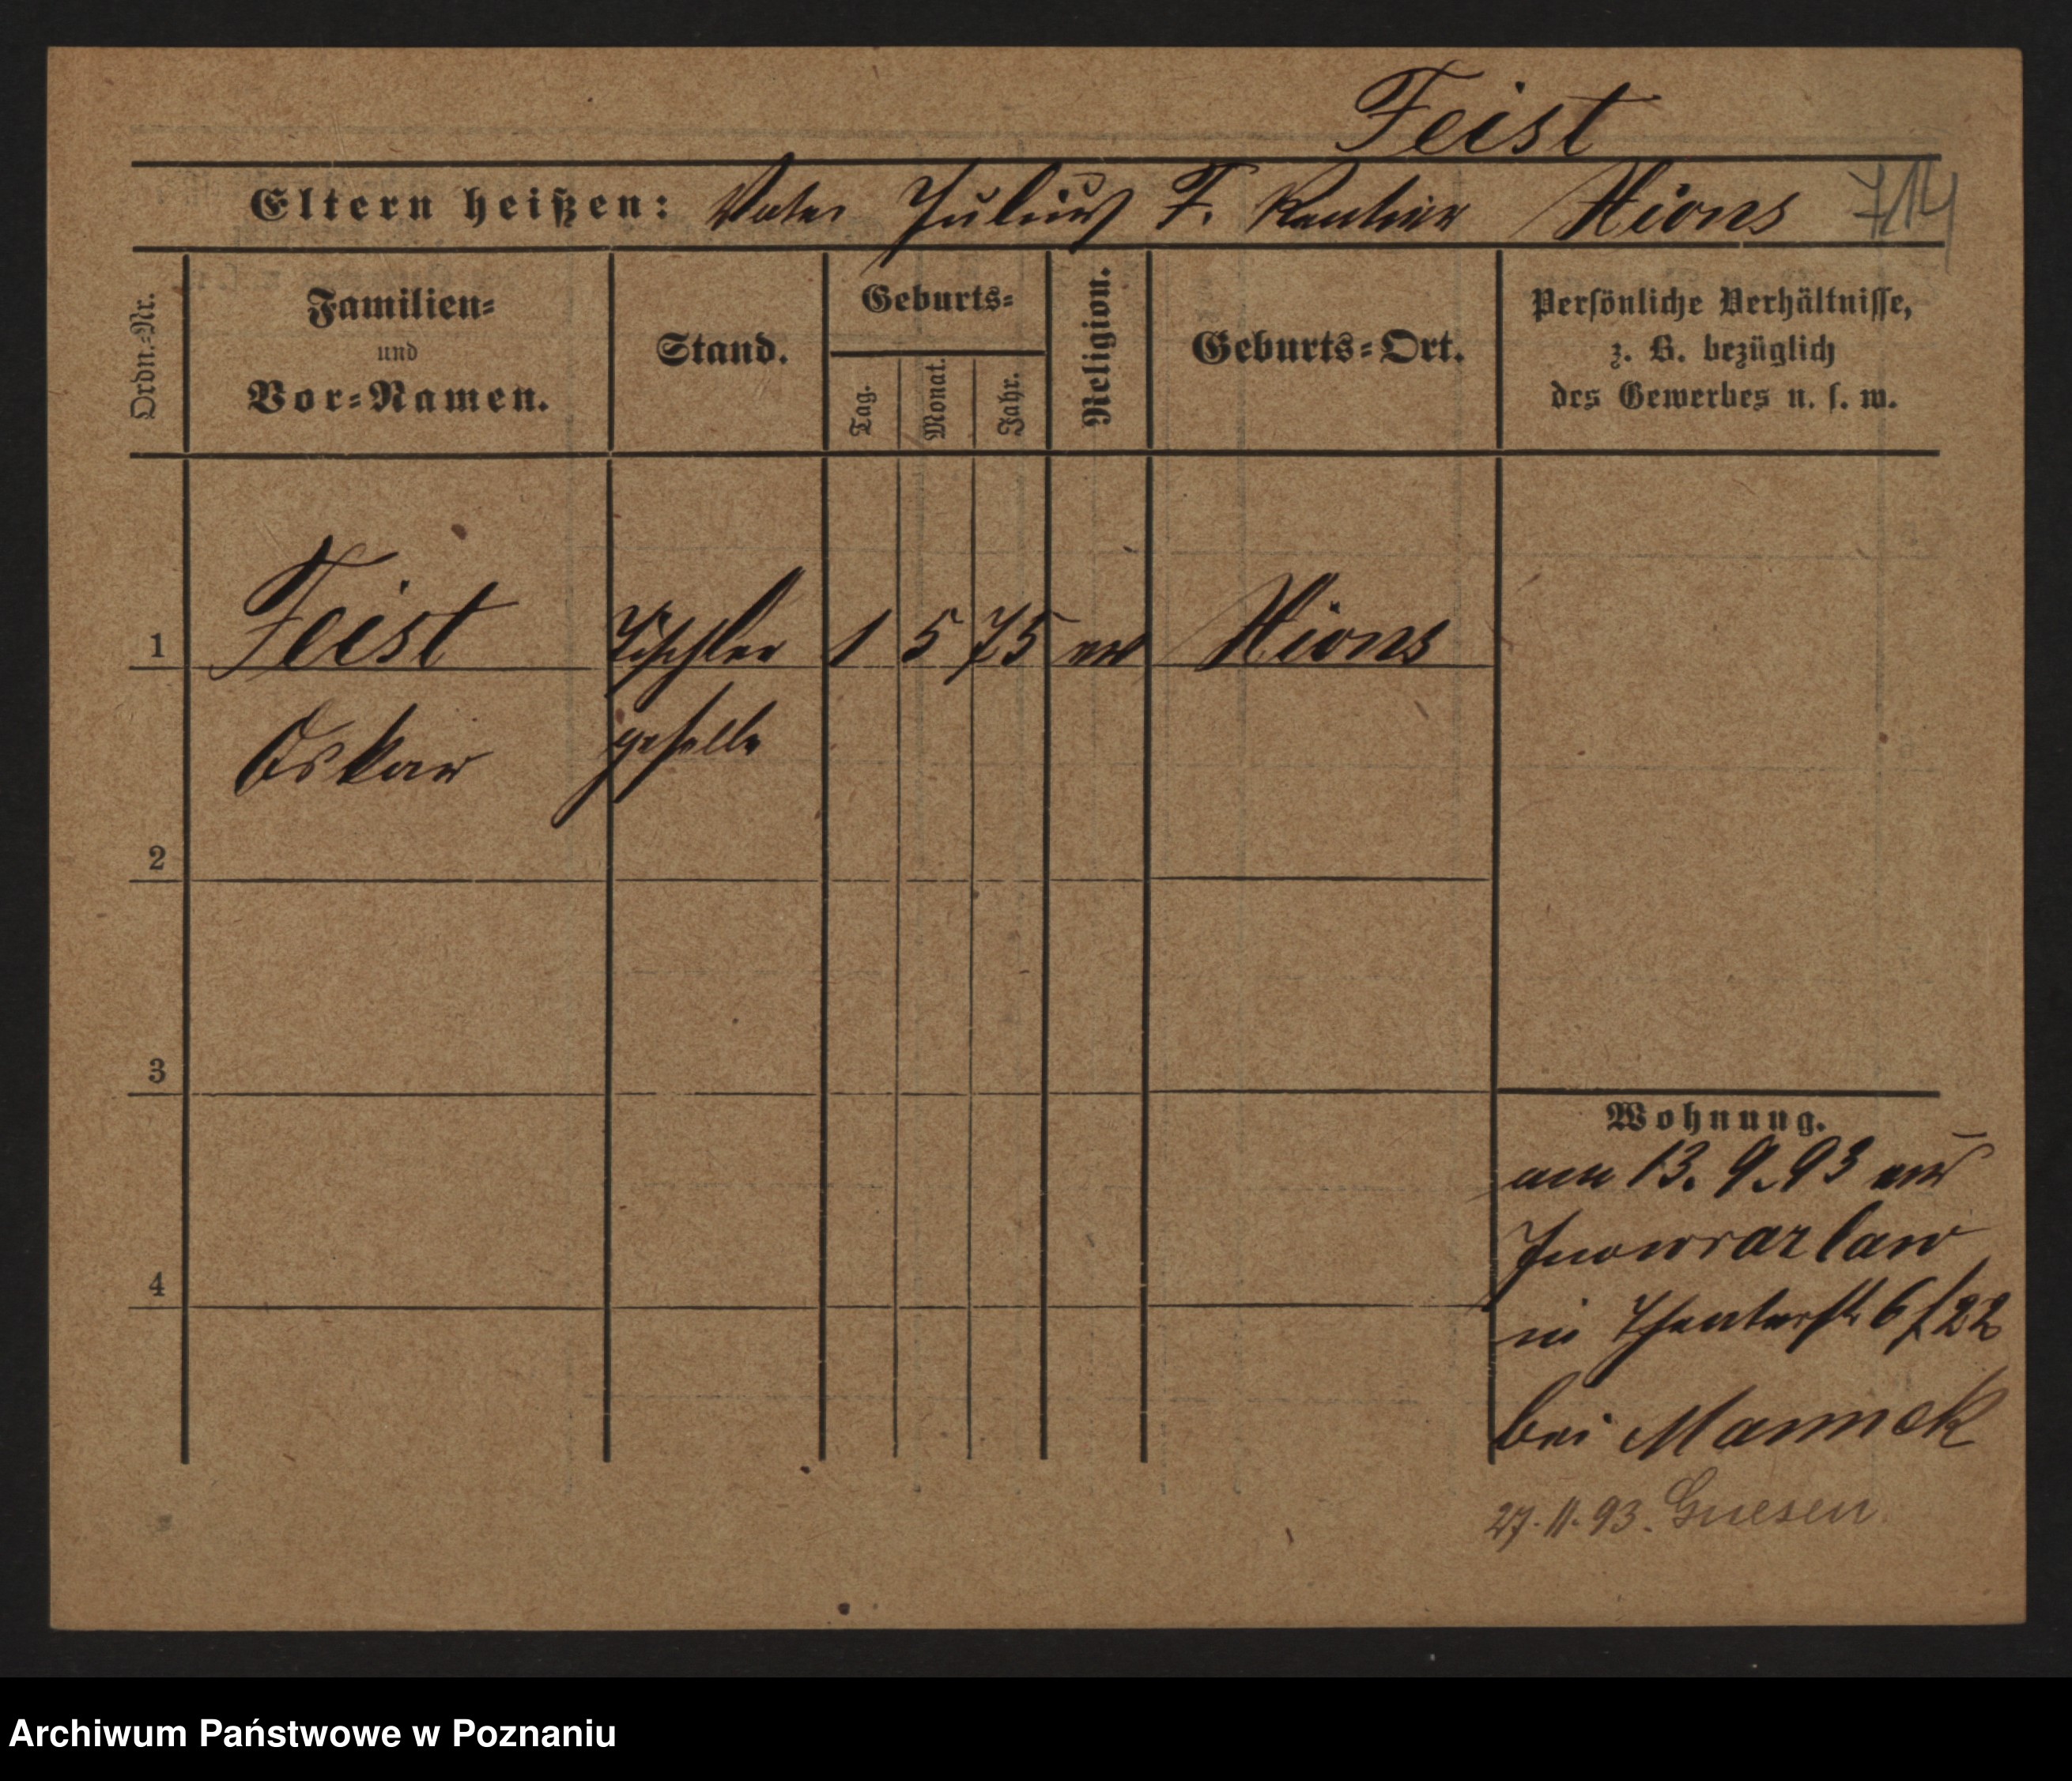 Feist
Eltern heißen: Vater Julius F. Rentier Xions 714
Ordn.-Nr.
Familien-
und
Vor-Namen.
Stand.
Geburts-
Tag.
Monat.
Jahr.
Religion.
Geburts-Ort.
Persönliche Verhältnisse,
z. B. bezüglich
des Gewerbes u. s. w.
1 Feist Tischler 1 5 75 ev Xions
Oskar geselle
2
3
4
Wohnung.
am 13. 9. 93 aus
Inowrazlaw
in Theaterstr 6 / 22
bei
27. 11. 93. Gnesen.
Archiwum Państwowe w Poznaniu